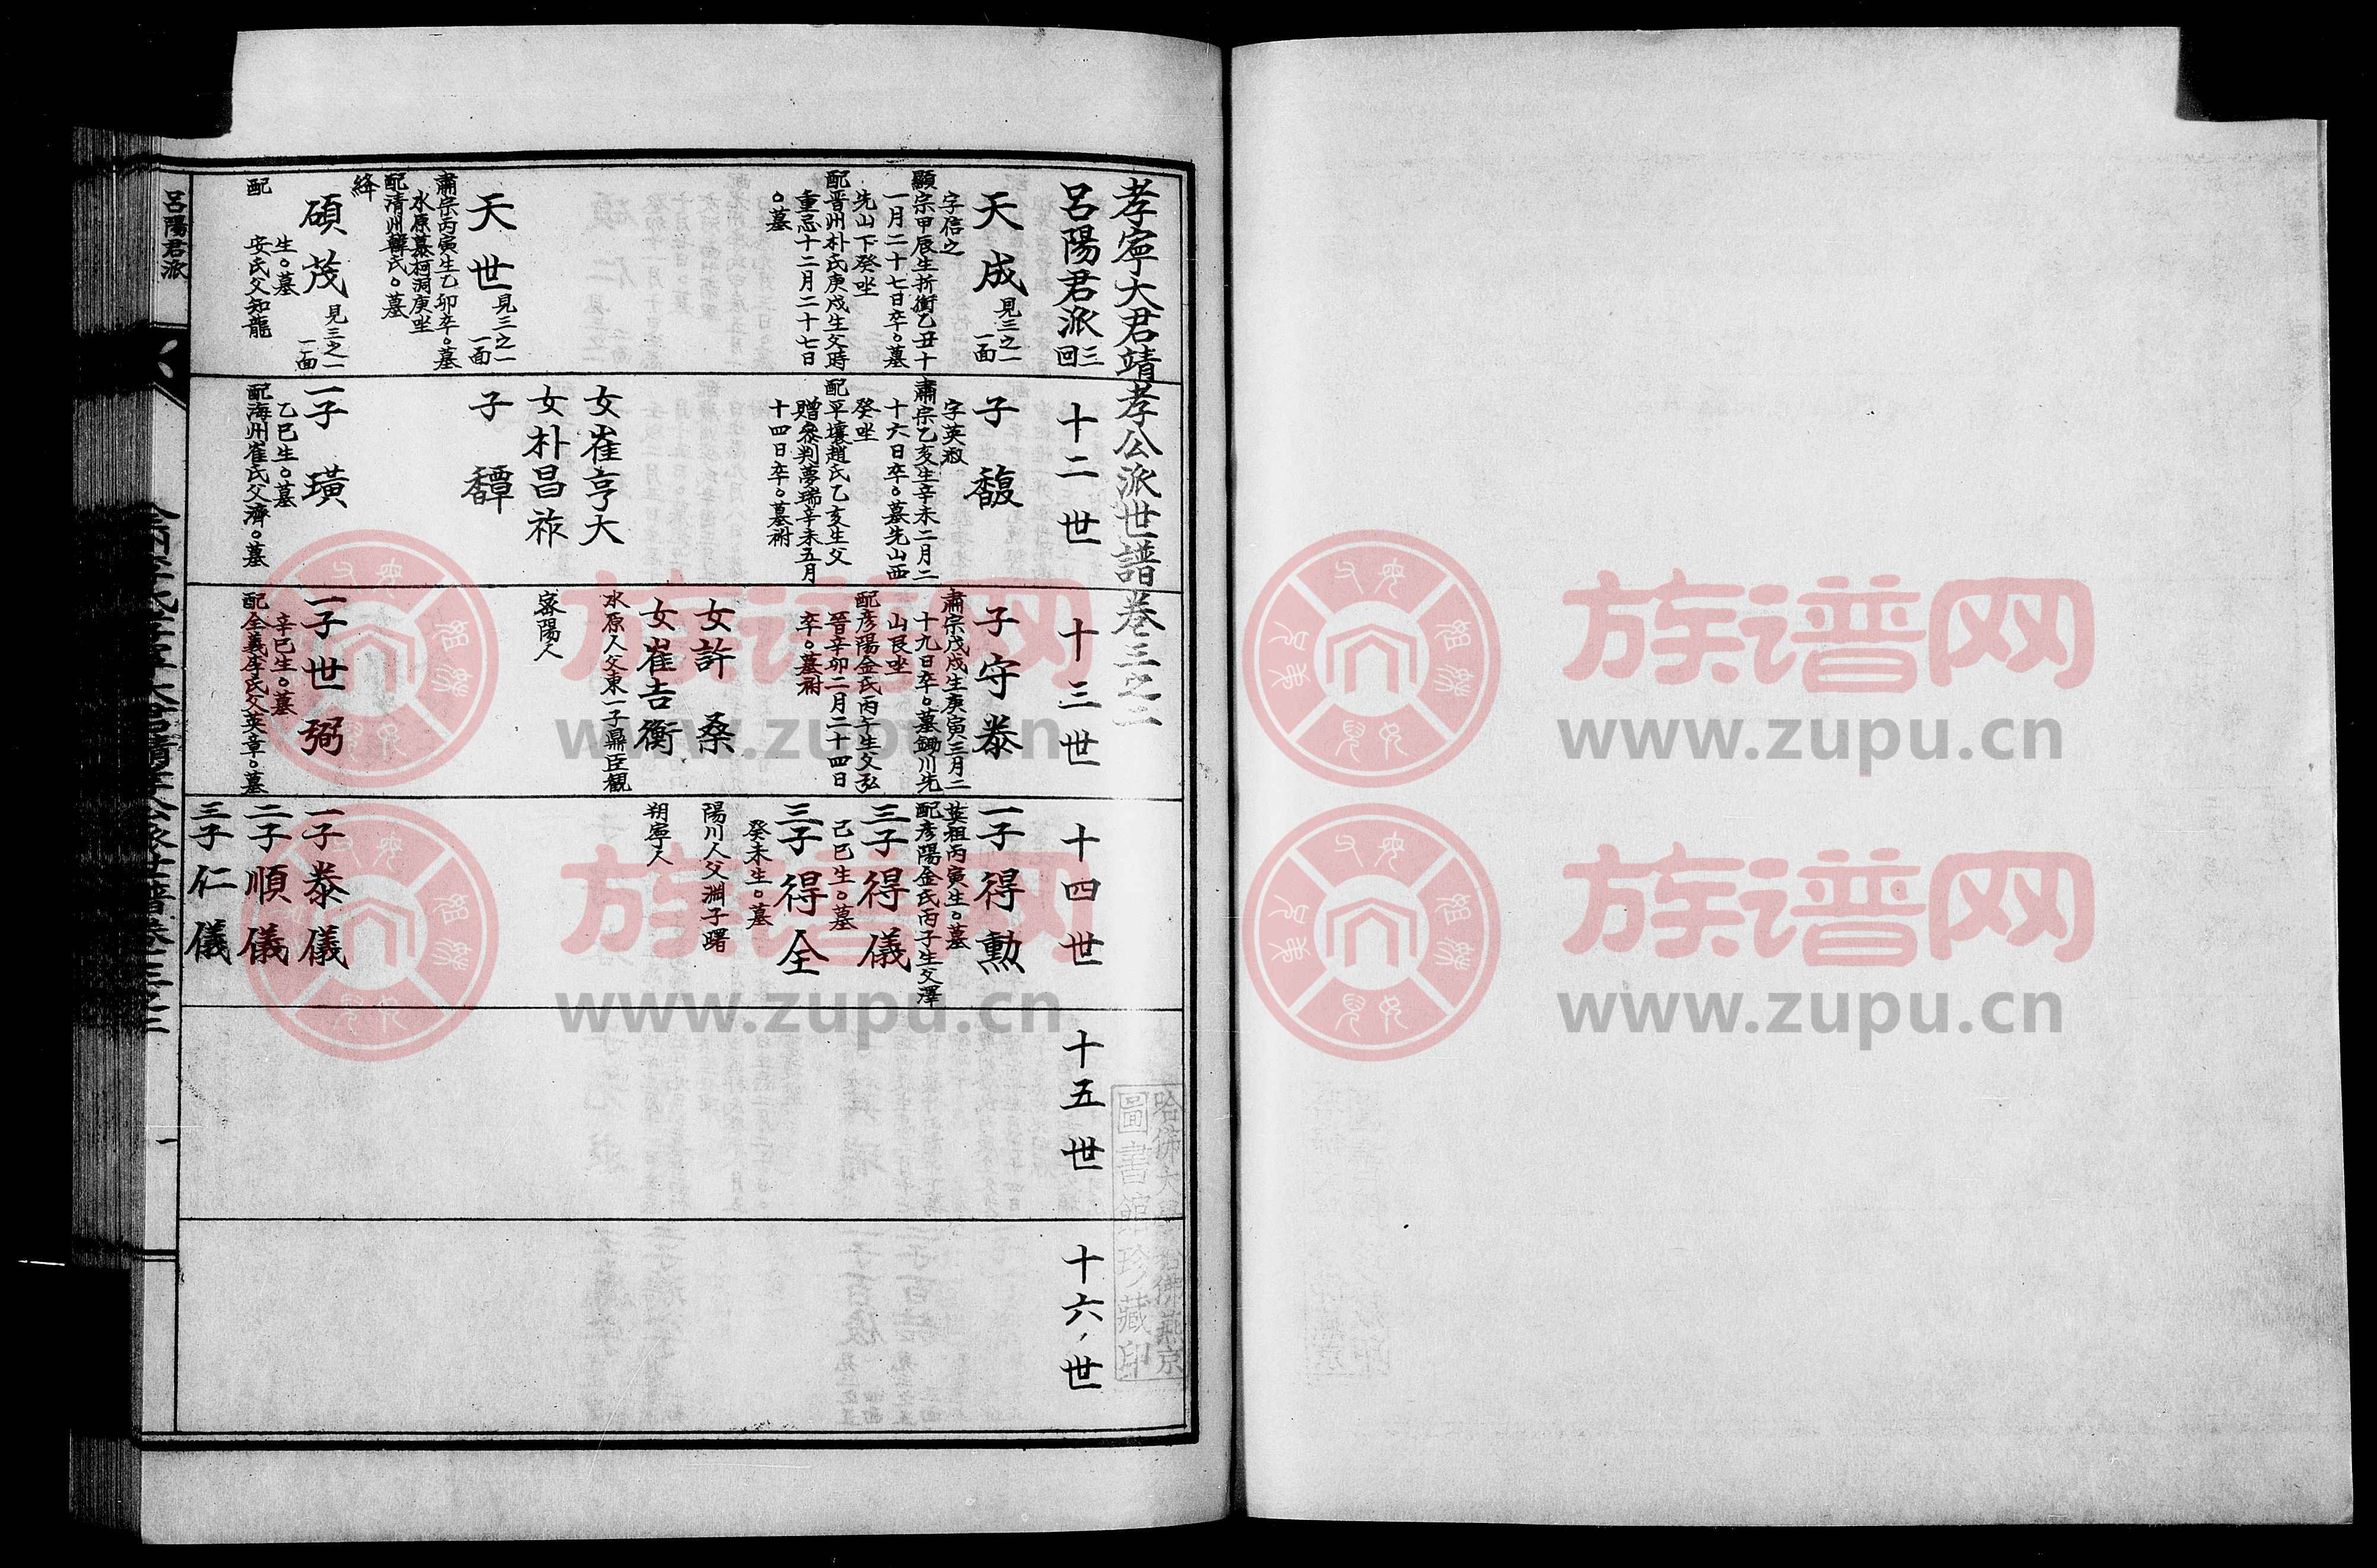 孝寧大君靖孝公派世譜卷三之二
呂陽君派 三回
十二世
十三世
十四世
十五世
十六世
天成 見三之一 一面
字信之
顯宗甲辰生折衝乙丑十
一月二十七日卒○墓
先山下癸坐
配晋州朴氏庚戌生父時
重忌十二月二十七日
○墓
天世 見三之一 一面
肅宗丙寅生乙卯卒○墓
水原慕柯洞庚坐
配清州韓氏○墓
絳
碩茂 見三之一 一面
生○墓
配 安氏父知龍
子馥
字英叔
肅宗乙亥生辛未二月二
十六日卒○墓先山西
癸坐
配平壤趙氏乙亥生父
贈叅判夢瑞辛未五月
十四日卒○墓祔
女崔亨大
女朴昌祚
子䭫
一子璜
乙巳生○墓
配海州崔氏父濟○墓
子守泰
肅宗戊戌生庚寅三月二
十九日卒○墓鋤川先
山艮坐
配彦陽金氏丙午生父弘
晉辛卯二月二十四日
卒○墓祔
女許桑
女崔吉衡
水原人父東一子鼎臣觀
密陽人
一子世弼
辛巳生○墓
配全義李氏父英章○墓
一子得勳
英祖丙寅生○墓
配彦陽金氏丙子生父澤
二子得儀
己巳生○墓
三子得全
癸未生○墓
陽川人父淵子曙
朔寧人
一子泰儀
二子順儀
三子仁儀
呂陽君派
一
哈佛大學哈佛燕京
圖書館珍藏印
族谱网
www.zupu.cn
族谱网
www.zupu.cn
族谱网
www.zupu.cn
族谱网
www.zupu.cn